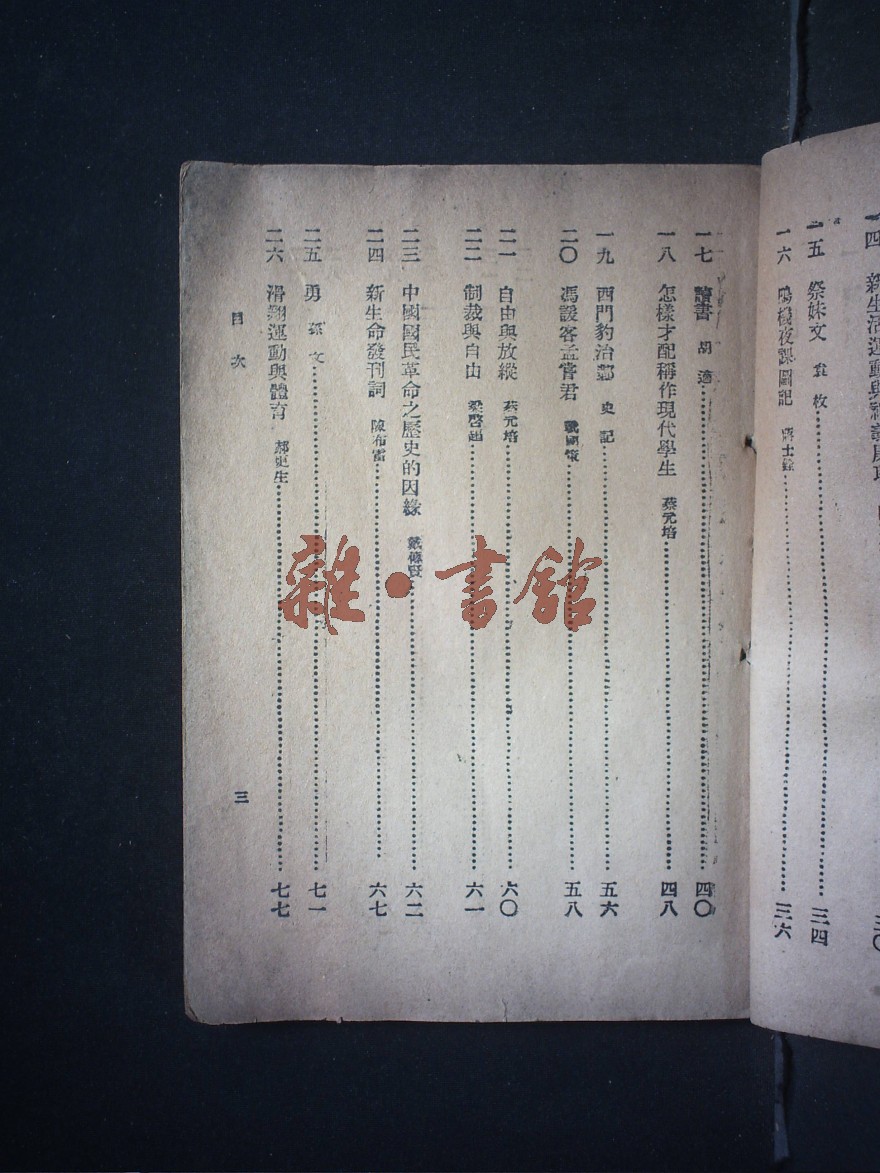 一四 新生活運動與禮義廉恥
一五 祭妹文 袁枚 三四
一六 鳴機夜課圖記 蔣士銓 三六
一七 讀書 胡適 四〇
一八 怎樣才配稱作現代學生 蔡元培 四八
一九 西門豹治鄴 史記 五六
二〇 馮諼客孟嘗君 戰國策 五八
二一 自由與放縱 蔡元培 六〇
二二 制裁與自由 梁啓超 六一
二三 中國國民革命之歷史的因緣 戴傳賢 六二
二四 新生命發刊詞 陳布雷 六七
二五 勇 孫文 七一
二六 滑翔運動與體育 郝更生 七七
目次 三
雜·書館